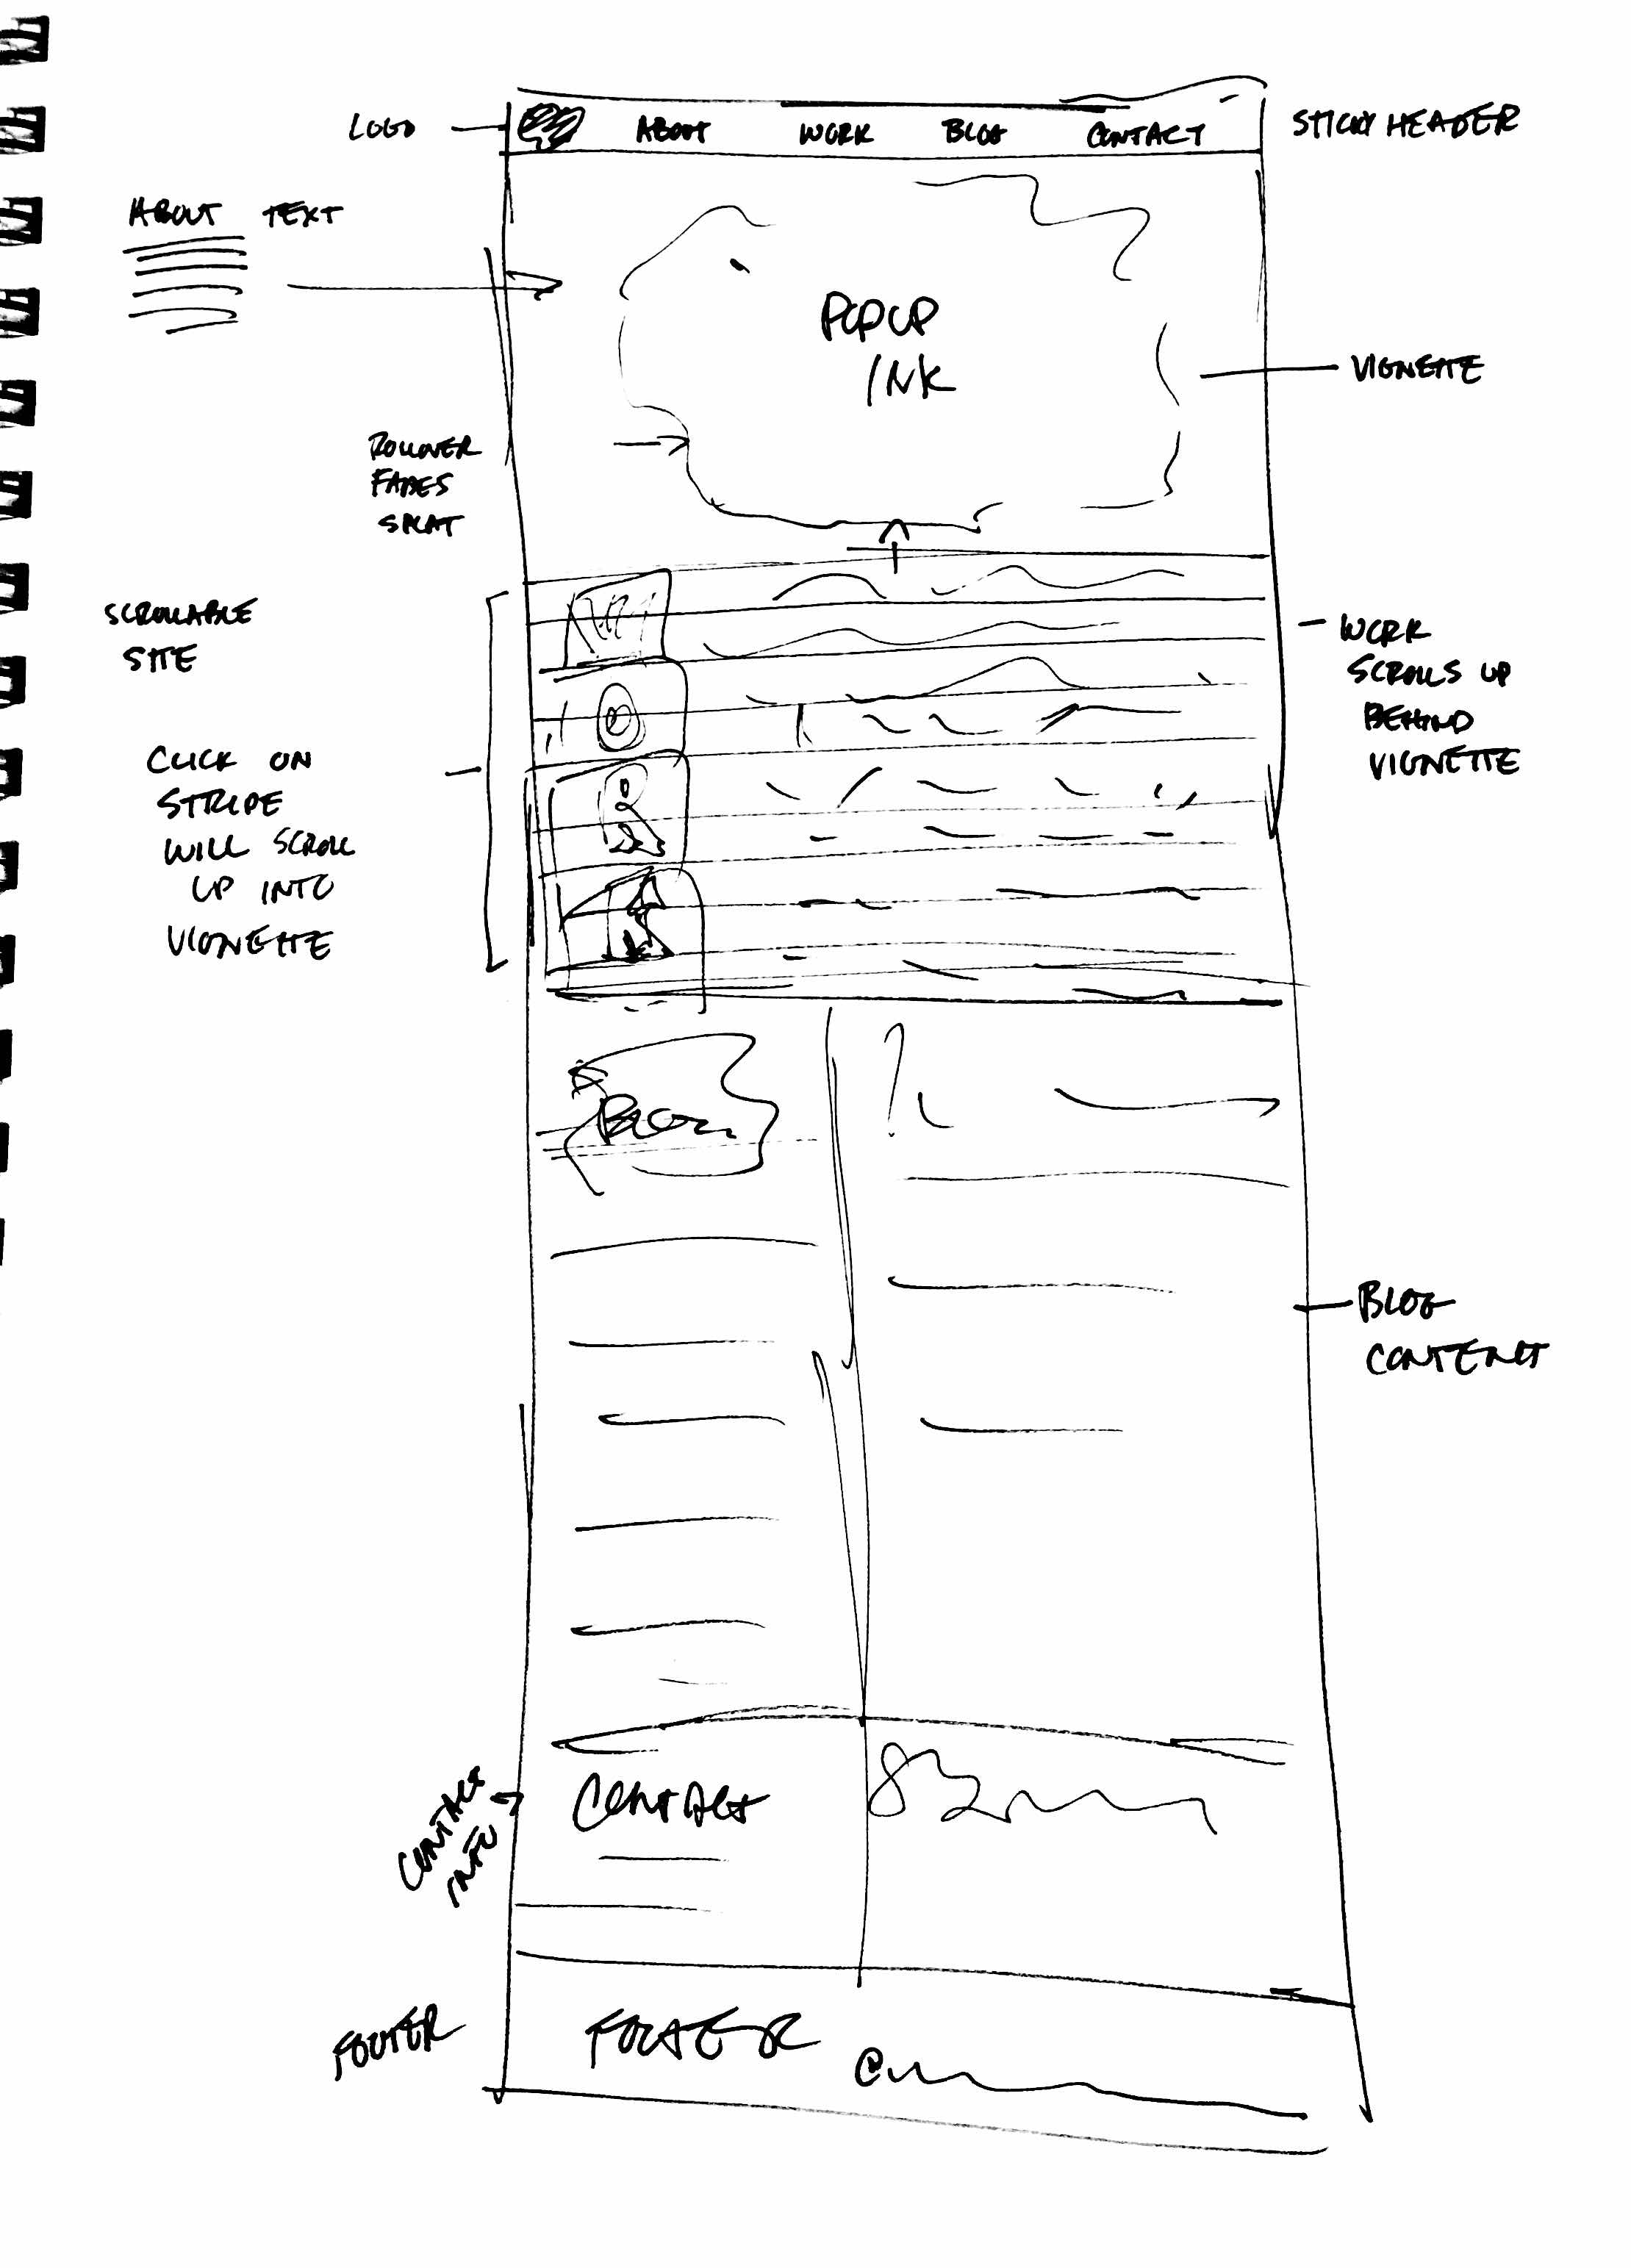 LOGO
ABOUT
WORK
BLOG
CONTACT
STICKY HEADER
ABOUT TEXT
POPUP
INK
VIGNETTE
ROLLOVER
FADES
SPLAT
SCROLLABLE
SITE
CLICK ON
STRIPE
WILL SCROLL
UP INTO
VIGNETTE
WORK
SCROLLS UP
BEHIND
VIGNETTE
BLOG
BLOG
CONTENT
CONTACT
INFO
CONTACT
FOOTER
FOOTER